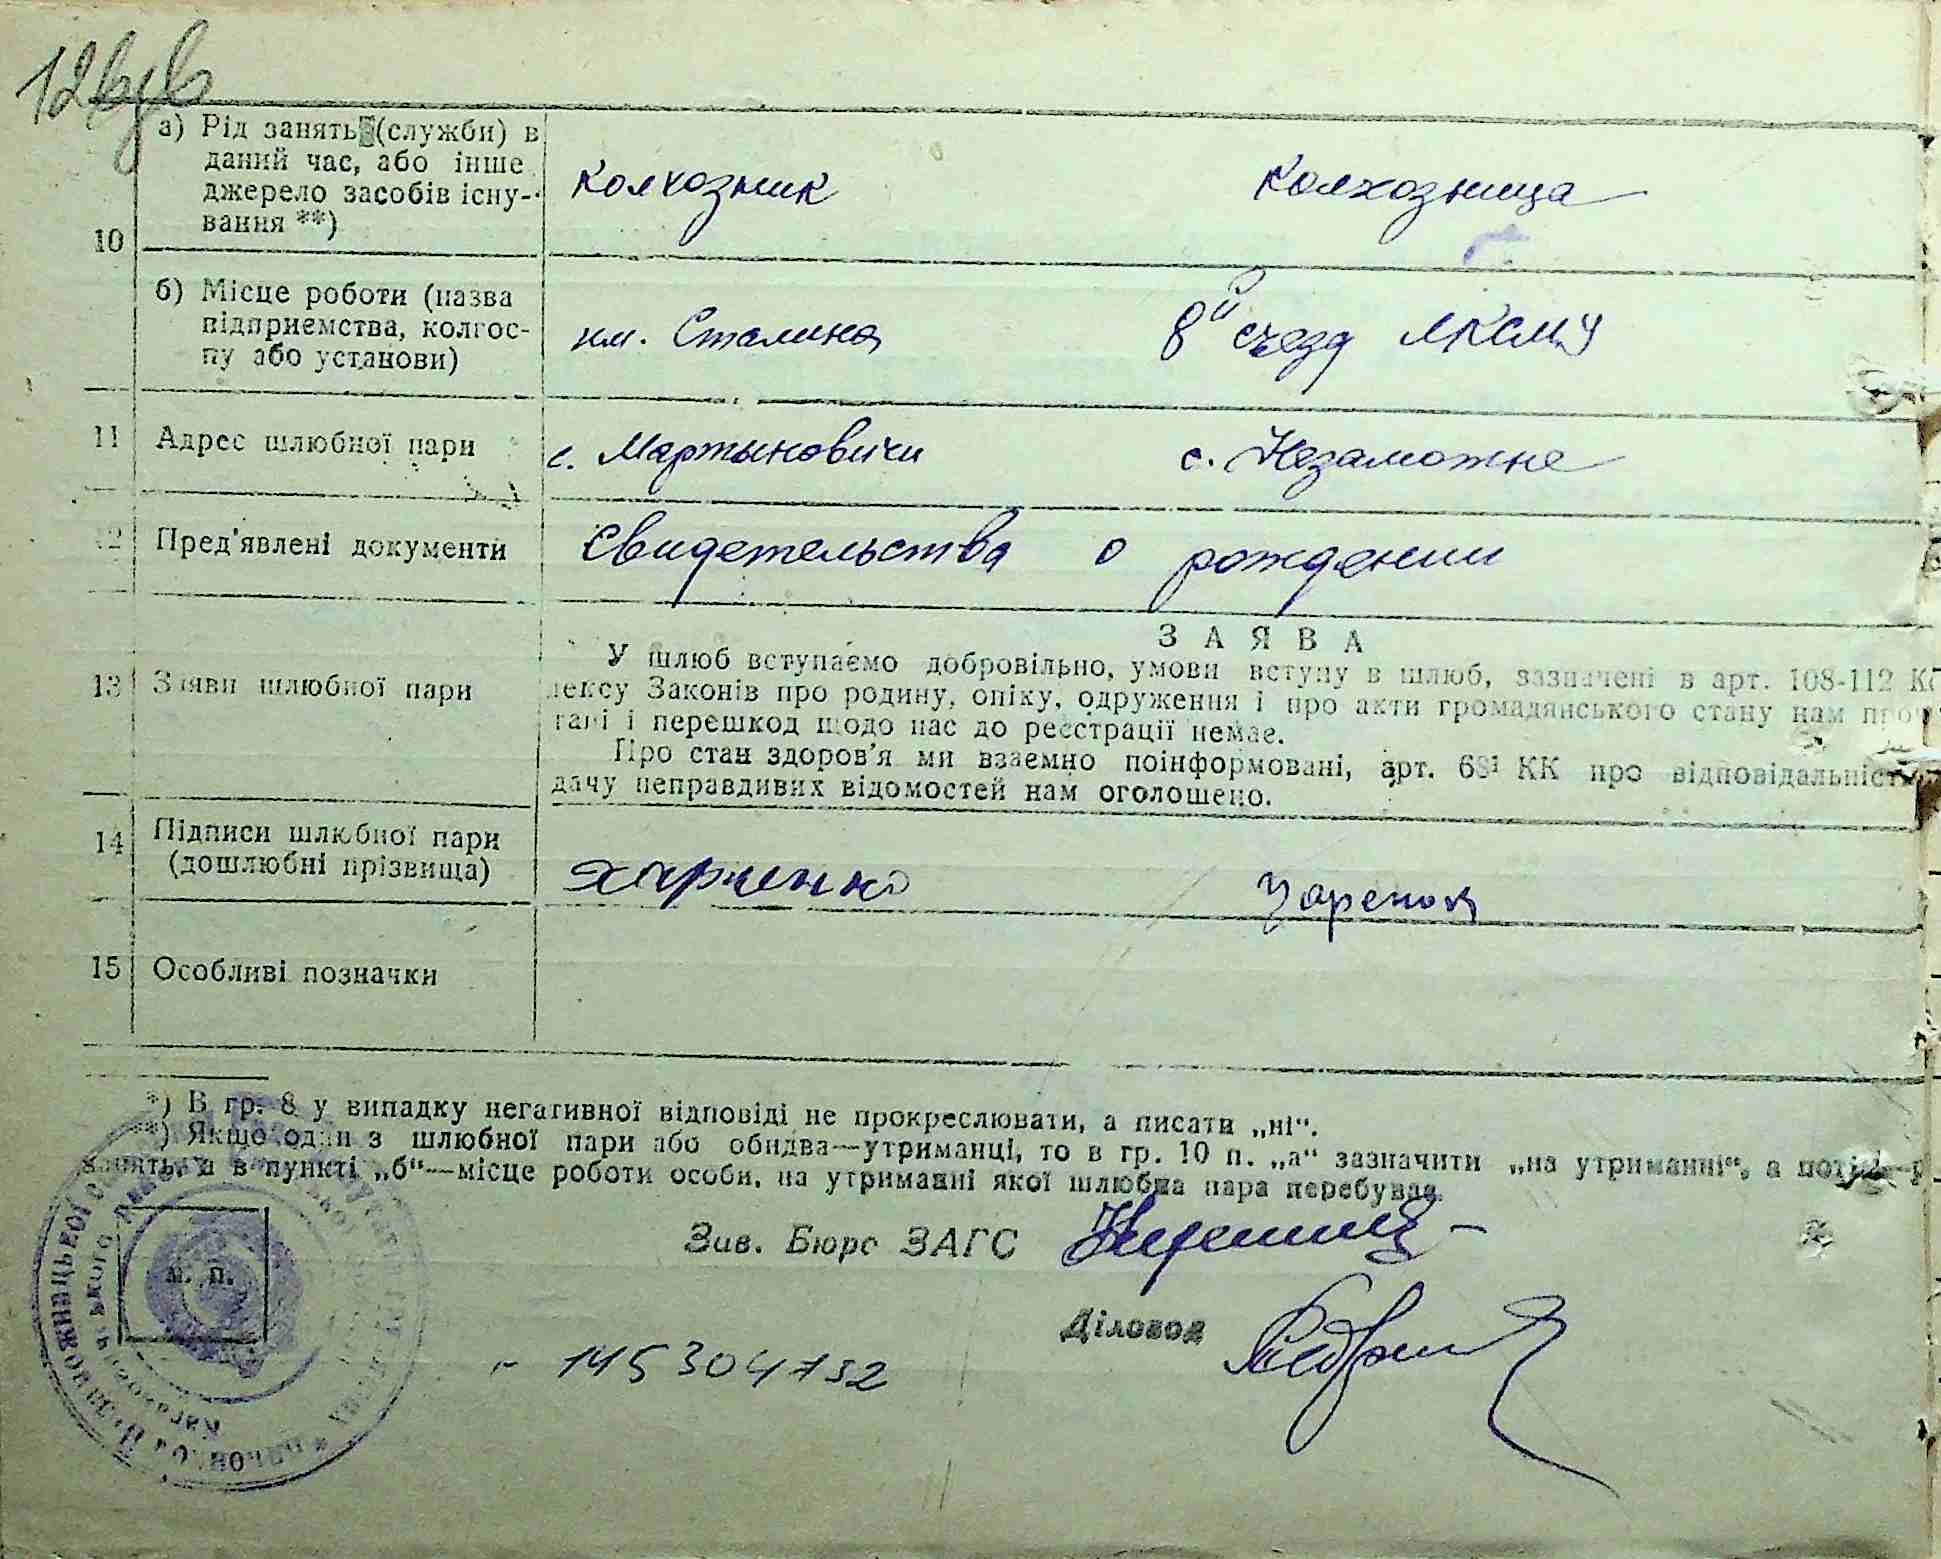 а) Рід занять (службу) в
даний час, або інше
джерело засобів існу-
вання **)
колхозник колхозница
10
б) Місце роботи (назва
підприємства, колгос-
пу або установи)
им. Сталина 8й съезд ЛКСМУ
11 Адрес шлюбної пари с. Мартыновичи с. Незаможне
12 Пред'явлені документи свидетельства о рождении
ЗАЯВА
13 Заяви шлюбної пари
У шлюб вступаємо добровільно, умови вступу в шлюб, зазначені в арт. 108-112 Ко
дексу Законів про родину, опіку, одруження і про акти громадянського стану нам проч
тані і перешкод щодо нас до реєстрації немає.
Про стан здоров'я ми взаємно поінформовані, арт. 68¹ КК про відповідальність
дачу неправдивих відомостей нам оголошено.
14 Підписи шлюбної пари
(дошлюбні прізвища)
Харченко Царенок
15 Особливі позначки
*) В гр. 8 у випадку негативної відповіді не прокреслювати, а писати „ні“.
**) Якщо один з шлюбної пари або обидва—утриманці, то в гр. 10 п. „а“ зазначити „на утриманні“, а потім р
занять, а в пункті „б“—місце роботи особи, на утриманні якої шлюбна пара перебуває.
Зав. Бюро ЗАГС
м. п.
Діловод
145304732